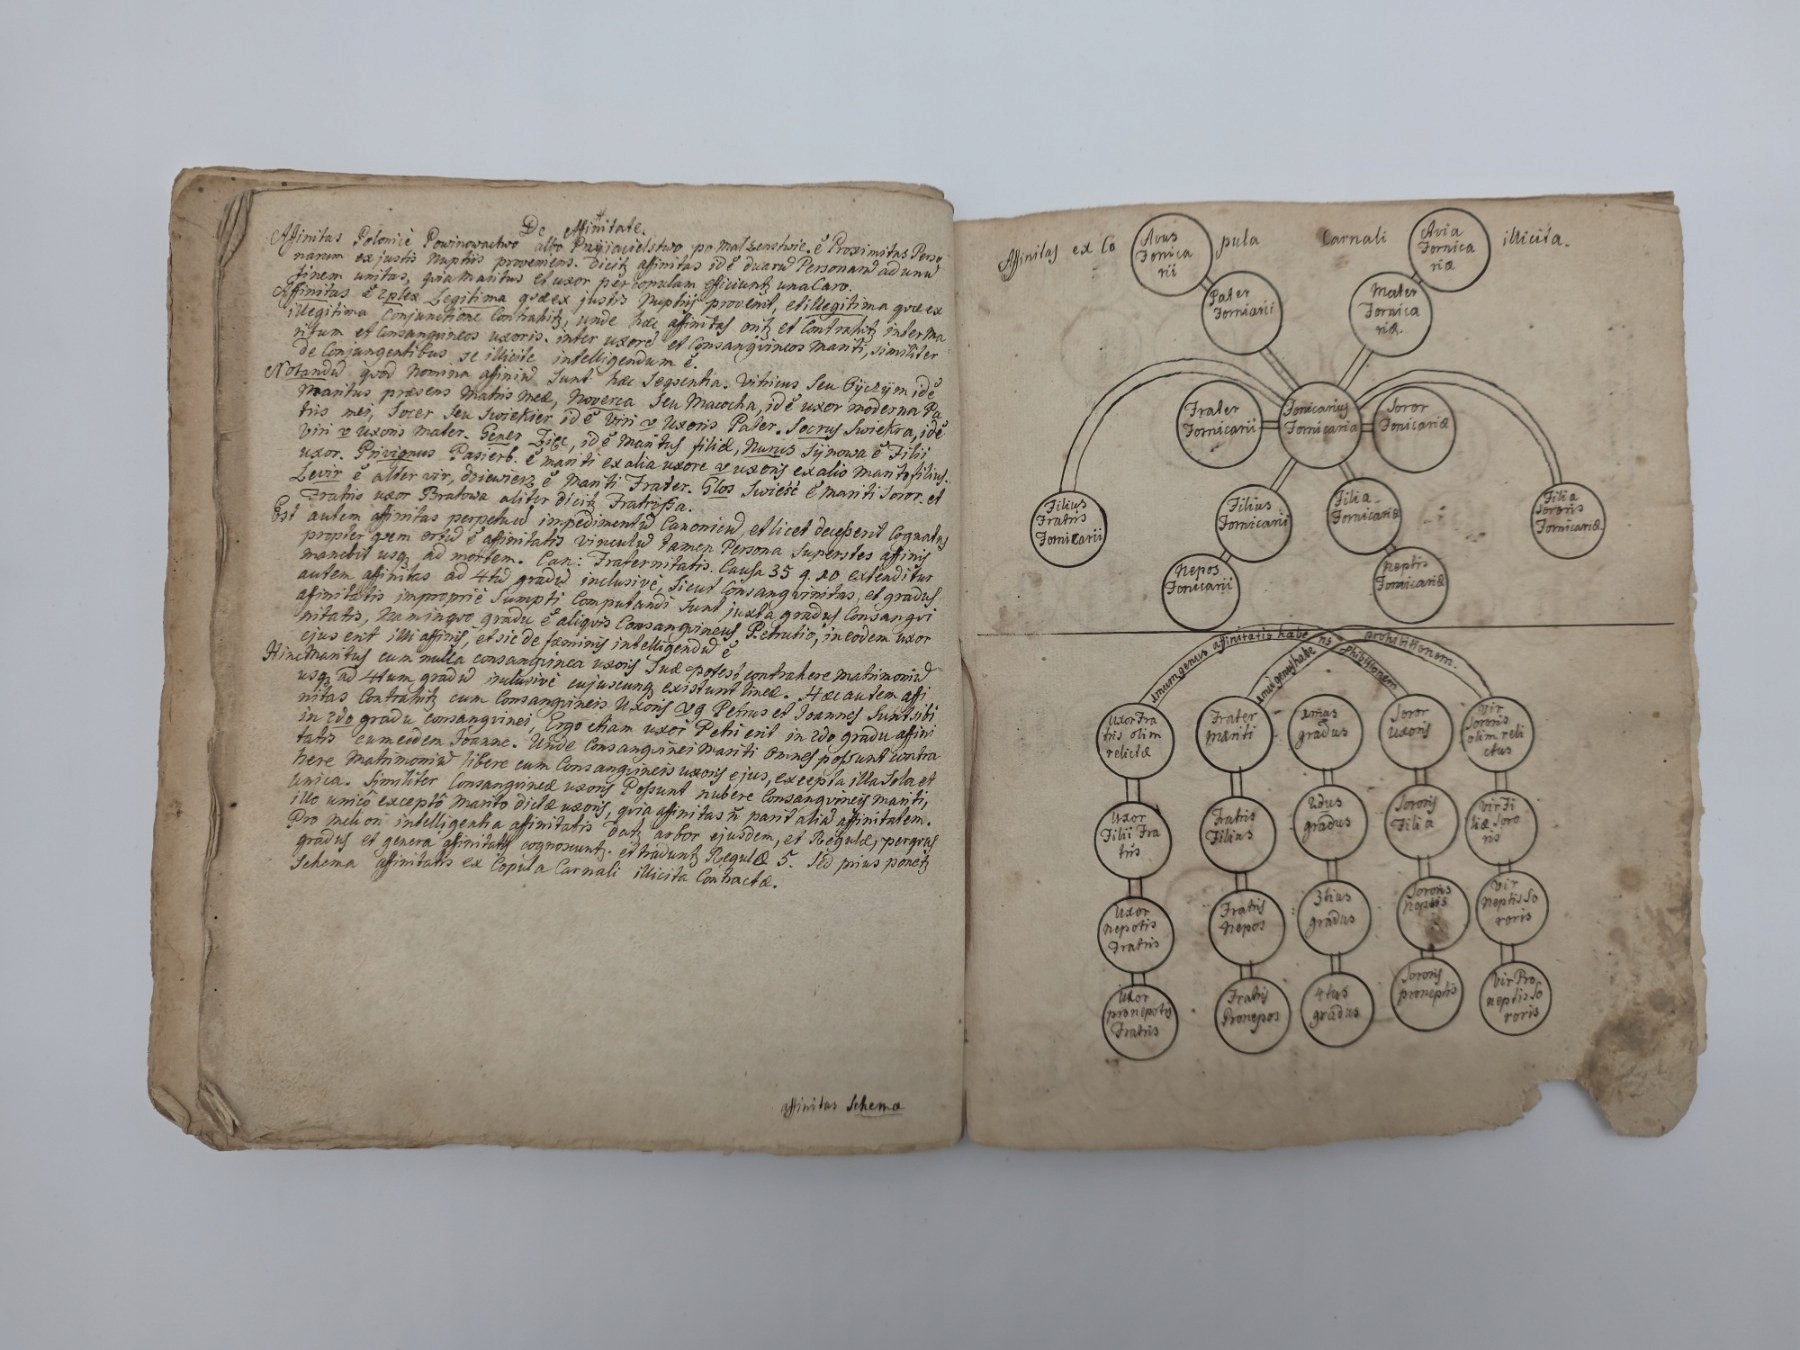 De Affinitate.
Affinitas Polonicè Powinowactwo albo Przyiacielstwo po Malzenstwie ē Proximitas Perso
narum ex justis Nuptiis proveniens. Dicitz affinitas id ē duarū Personarū ad unū
finem unitas, quia Maritus et uxor per Copulam efficiuntz una Caro.
Affinitas ē 2plex Legitima quæ ex justis Nuptijs provenit, et illegitima quæ ex
illegitima Conjunctione Contrahitz, unde hæc affinitas oritz et Contrahitz inter Ma
ritum et Consangvineos uxoris. inter uxorē et Consangvineos Mariti, similiter
de Conjungentibus se illicite intelligendum ē.
Notandū qvod Nomina affiniū Sunt hæc Seqventia. Vitricus Seu Oyczym id ē
Maritus præsens Matris meæ, Noverca Seu Macocha, id ē uxor moderna Pa
tris mei, Socer Seu Swiekier id ē Viri v Uxoris Pater. Socrus Swiekra, id ē
Viri v Uxoris Mater. Gener Zięć, id ē Maritus filiæ, Nurus Synowa ē Filii
uxor. Privignus Pasierb ē mariti ex alia uxore v uxoris ex alio Marito filius.
Levir ē alter vir, dziewierz ē Mariti Frater. Glos Swieść ē Mariti Soror. et
Fratris uxor Bratowa aliter dicitz Fratrissa.
Est autem affinitas perpetuū impedimentū Canonicū, et licet decesserit Cognatus
propter qvem ortū ē affinitatis vinculū tamen Persona Superstes affinis
manebit usqz ad mortem. Can: Fraternitatis. Causa 35 q. 10 extenditur
autem affinitas ad 4tū gradū inclusivè, Sicut Consangvinitas, et gradus
affinitatis impropriè Sumpti Computandi Sunt juxta gradus Consangvi
nitatis, Nam in qvo gradu ē aliqvis Consangvineus Petrutio, in eodem uxor
ejus erit illi affinis, et sic de fæminis intelligendū ē
Hinc Maritus cum nulla consangvinea uxoris Suæ potest contrahere Matrimoniū
usqz ad 4tum gradū inclusivè cujuscunqz existunt lineæ. Hæc autem affi
nitas Contrahitz cum Consangvineis Uxoris vg Petrus et Joannes Sunt sibi
in 2do gradu consangvinei, Ergo etiam uxor Petri erit in 2do gradu affini
tatis cum eodem Joanne. Unde Consangvinei Mariti Omnes possunt contra
here Matrimoniū libere cum Consangvineis uxoris ejus, excepta illa Sola et
unica. Similiter Consangvineæ uxoris Possunt nubere Consangvineis Mariti,
illo unicò exceptô Marito dictæ uxoris, qvia affinitas ñ parit aliā affinitatem.
Pro Meliori intelligentia affinitatis Datz arbor ejusdem, et Regulæ, per qvas
gradus et genera affinitatis cognoscuntz. et traduntz Regulæ 5. Sed prius ponetz
Schema affinitatis ex Copula Carnali illicita Contractæ.
affinitas Schema
Affinitas ex Co pula Carnali illicita.
Avus
Fornica
rii
Avia
Fornica
riæ
Pater
Fornicarii
Mater
Fornica
riæ
Frater
Fornicarii
Fornicarius
Fornicaria
Soror
Fonicariæ
Filius
Fratris
Fornicarii
Filius
Fornicarii
Filia
Fornicariæ
Filia
Sororis
Fornicariæ
Nepos
Fornicarii
Neptis
Fornicariæ
unum genus affinitatis habe ns prohibitionem.
unū genus habe phibitionem
Uxor Fra
tris olim
relictæ
Frater
Mariti
1mus
gradus
Soror
uxoris
Vir
Sororis
olim reli
ctus
Uxor
Filii Fra
tris
Fratris
Filius
2dus
gradus
Sororis
Filia
Vir Fi
liæ Soro
ris
Uxor
Nepotis
Fratris
Fratris
Nepos
3tius
gradus
Sororis
Neptis
Vir
Neptis So
roris
Uxor
pronepotis
Fratris
Fratris
Pronepos
4tus
gradus
Sororis
proneptis
Vir Pro
neptis So
roris